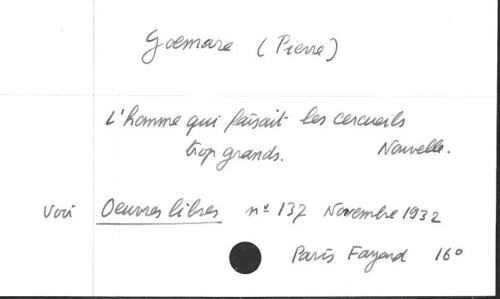 Goemare (Pierre)
L'homme qui faisait les cercueils
trop grands. Nouvelle.
Voir Oeuvres libres n° 137 Novembre 1932
Paris Fayard 16°